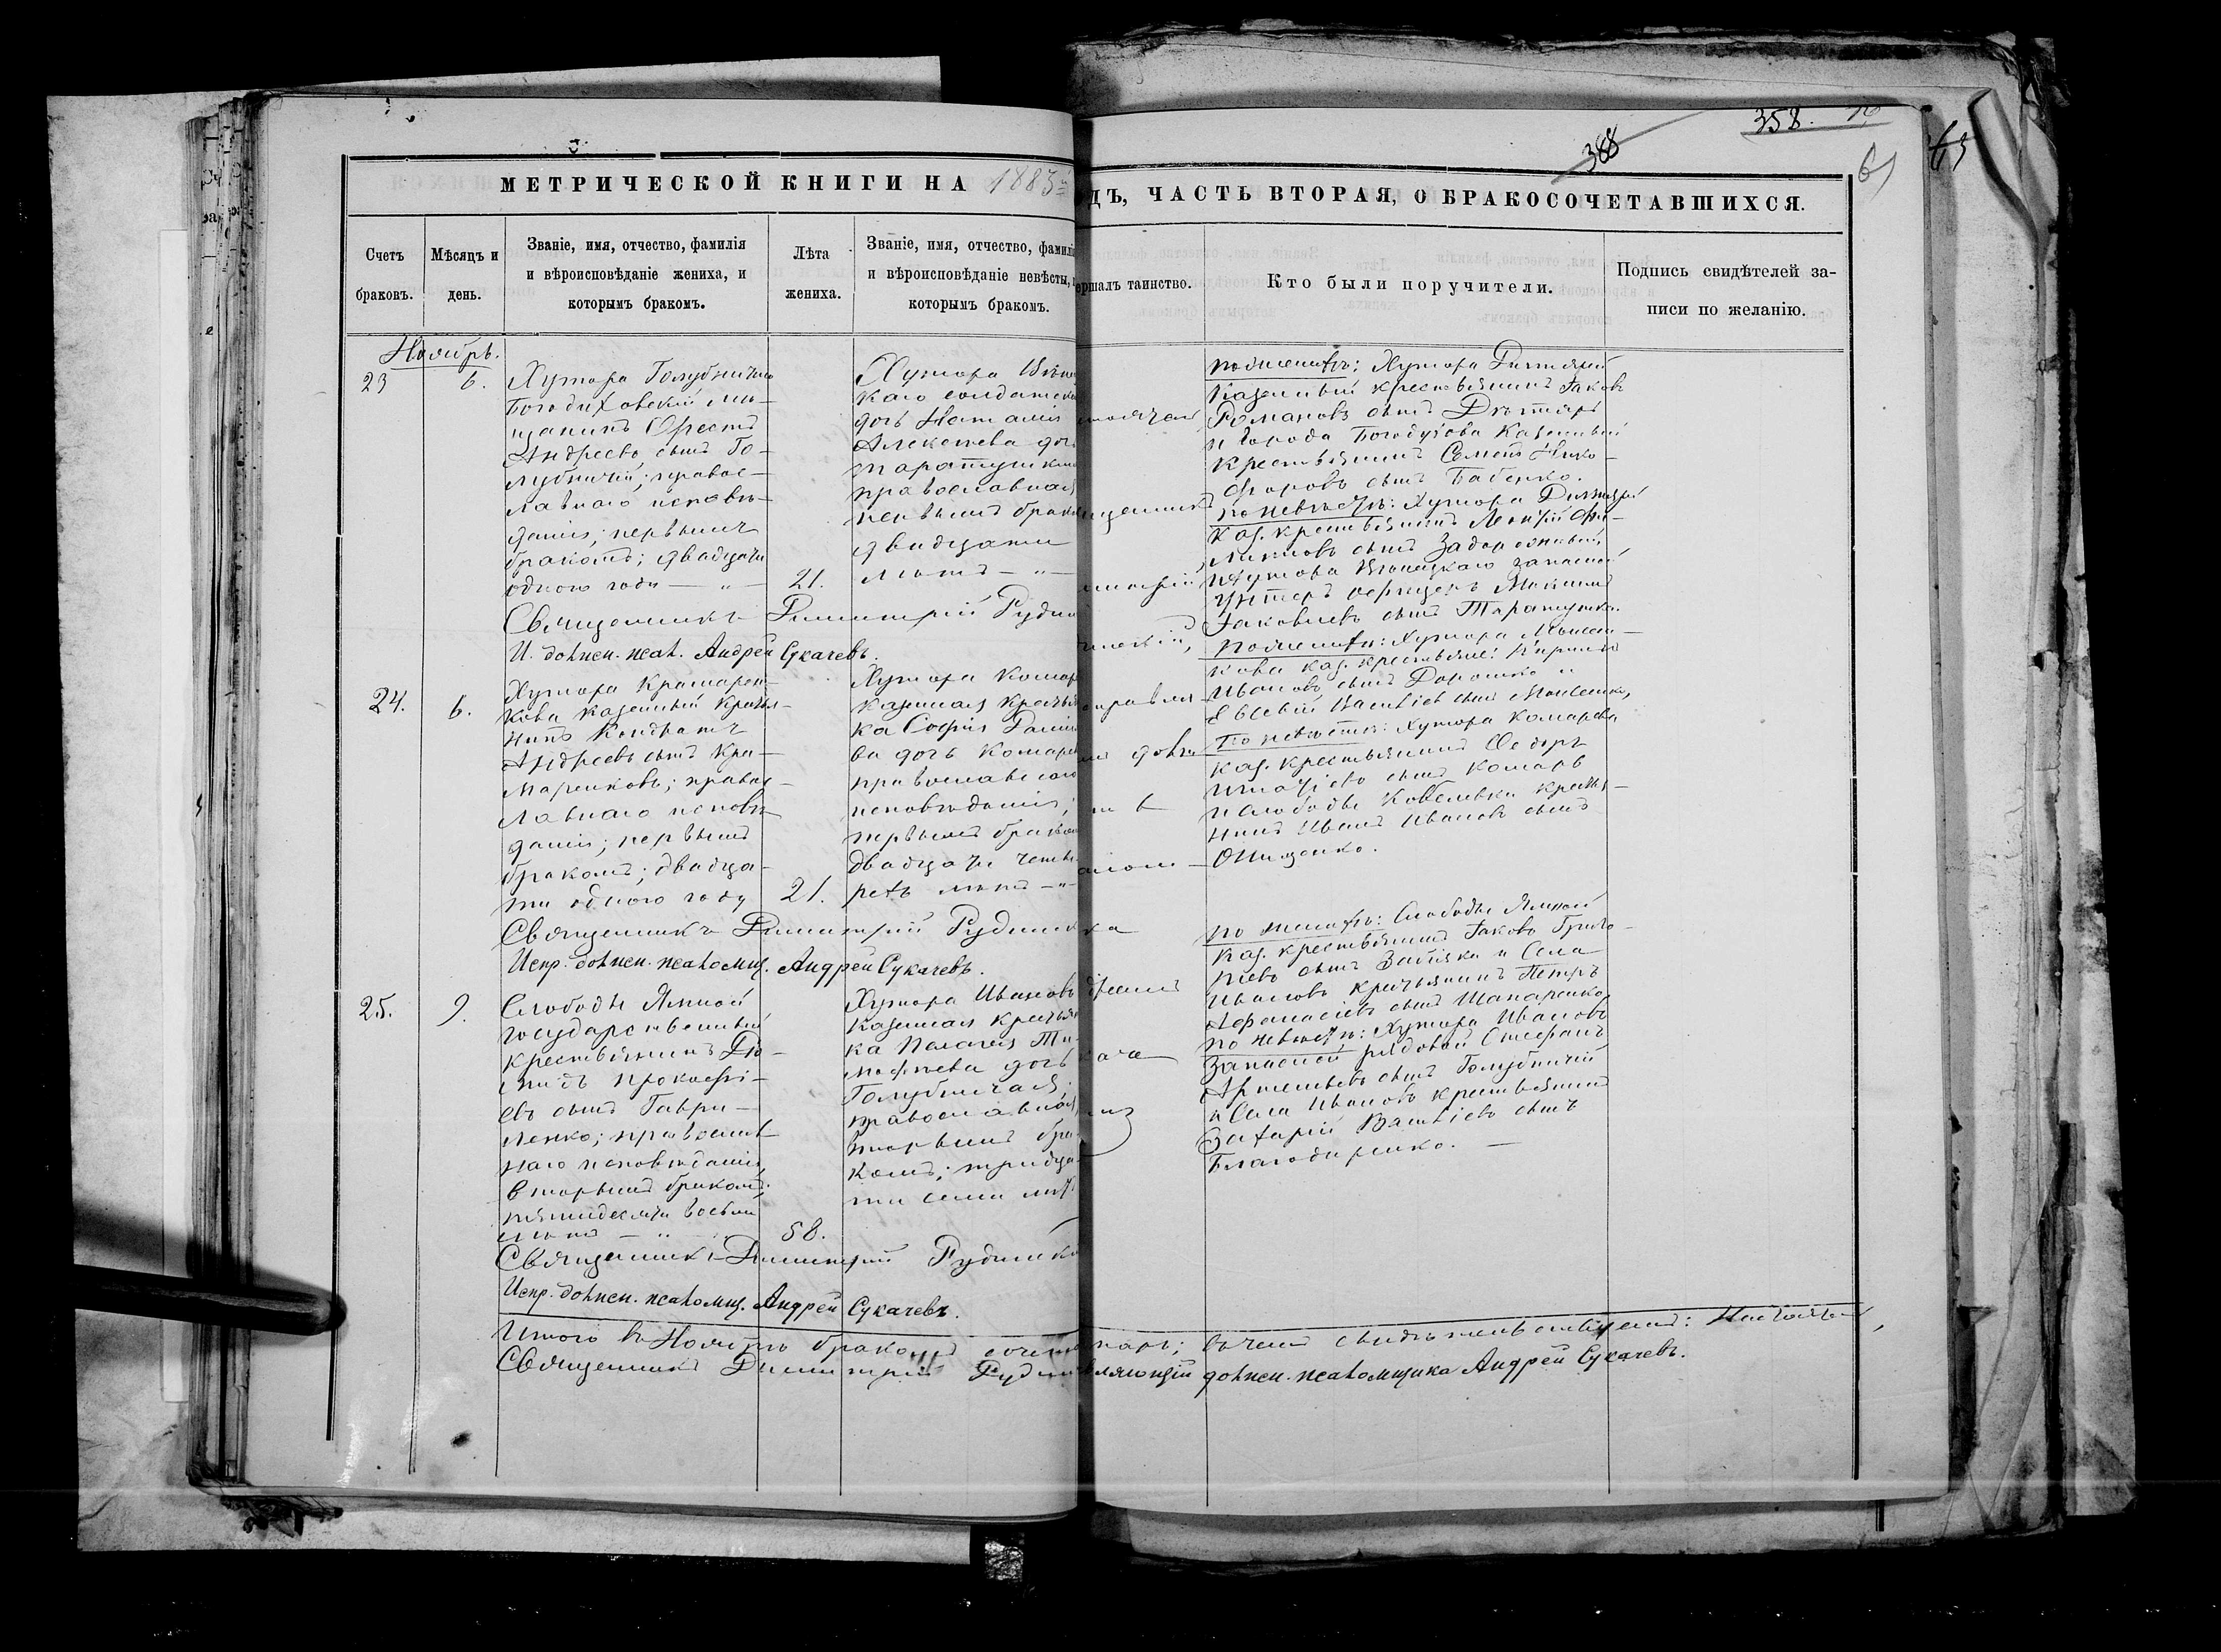 358.
388
61
МЕТРИЧЕСКОЙ КНИГИ НА 1883й
ДЪ, ЧАСТЬ ВТОРАЯ, О БРАКОСОЧЕТАВШИХСЯ.
Счетъ
браковъ.
Мѣсяцъ и
день.
Званіе, имя, отчество, фамилія
и вѣроисповѣданіе жениха, и
которымъ бракомъ.
Лѣта
жениха.
Званіе, имя, отчество, фамилі
и вѣроисповѣданіе невѣсты,
которымъ бракомъ.
ершалъ таинство.
Кто были поручители.
Подпись свидѣтелей за-
писи по желанію.
Ноябрь.
23
6.
Хутора Голубничаго
Богодуховскій мѣ-
щанинъ Орестъ
Андреевъ сынъ Го-
лубничій; правос-
лавнаго исповѣ-
данія; первымъ
бракомъ; двадцати
одного года — " —
21.
Хутора
каго солдатска
дочь Наталія
Алексѣева доч
Таратушкина
православная
первымъ брако
двадцати
лѣтъ — " —
Священникъ Димитрій Рудин
И. должн. псал. Андрей Сукачевъ.
по женихѣ: Хутора
Казенный крестьянинъ Іаковъ
Романовъ сынъ Дѣхтярь
и города Богодухова Казенный
крестьянинъ Семенъ Ники-
форовъ сынъ Бабенко.
по невѣстѣ: Хутора
каз. крестьянинъ Леонтій Фи-
липповъ сынъ Задорожный,
и Хутора запасной
унтеръ офицеръ Максимъ
Іаковлевъ сынъ Таратушка.
24.
6.
Хутора Крамарен-
кова казенный крестья-
нинъ Кондратъ
Андреевъ сынъ Кра-
маренковъ; правос-
лавнаго исповѣ-
данія; первымъ
бракомъ; двадца-
ти одного году
21.
Хутора Комар
казенная крестья
ка Софія Дани
ва дочь Комаре
православнаго
исповѣданія;
первымъ браком
двадцати четы
рехъ лѣтъ — " —
Священникъ Димитрій Рудинска
Испр. должн. псаломщ. Андрей Сукачевъ.
по женихѣ: Хутора
кова каз. крестьяне: Кирилъ
Ивановъ сынъ Дорошко и
Евсевій Васильевъ сынъ
По невѣстѣ: хутора Комарева
каз. крестьянинъ Ѳедоръ
Игнатіевъ сынъ Комарь
и слободы Ковалевки крестья-
нинъ Иванъ Ивановъ сынъ
Онищенко.
25.
9.
Слободы Ямной
государственный
крестьянинъ
Прокофі-
евъ сынъ Гаври-
ленко; православ-
наго исповѣданія,
вторымъ бракомъ;
пятидесяти восьми
лѣтъ — " —
58.
Хутора Ивановъ
казенная крестьян
ка Пелагея Ти-
мофѣева дочь
Голубничая;
православная,
вторымъ бра-
комъ; тридца-
ти семи лѣтъ
Священникъ Димитрій Рудинска
Испр. должн. псаломщ. Андрей Сукачевъ.
по женихѣ: Слободы Ямной
каз. крестьянинъ Іаковъ Григо-
ріевъ сынъ и Села
Ивановъ крестьянинъ Петръ
Афанасіевъ сынъ Шапаренко,
по невѣстѣ: Хутора Ивановъ
Запасной рядовой Стефанъ
Артемьевъ сынъ Голубничій
и Села Ивановъ крестьянинъ
Захарій Васильевъ сынъ
Благодаренко. —
Итого въ Ноябрѣ бракомъ сочета паръ; въ чемъ свидѣтельствуемъ:
Священникъ Димитрій Рудин вляющій должн. псаломщика Андрей Сукачевъ.